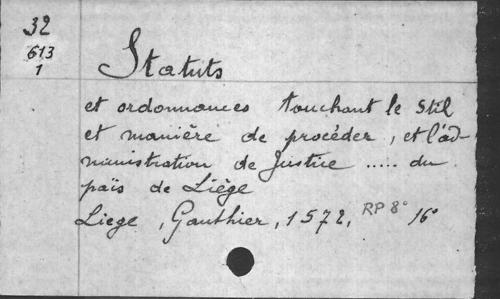 32
613
1
Statuts
et ordonnances touchant le stil
et manière de procéder, et l'ad-
ministration de Justice ..... du
païs de Liège
Liege, Gauthier, 1572, RP 8° 16°